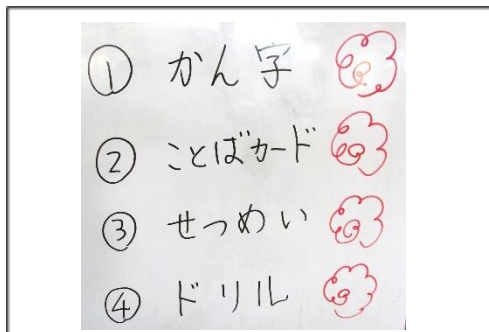 ① かん字
② ことばカード
③ せつめい
④ ドリル